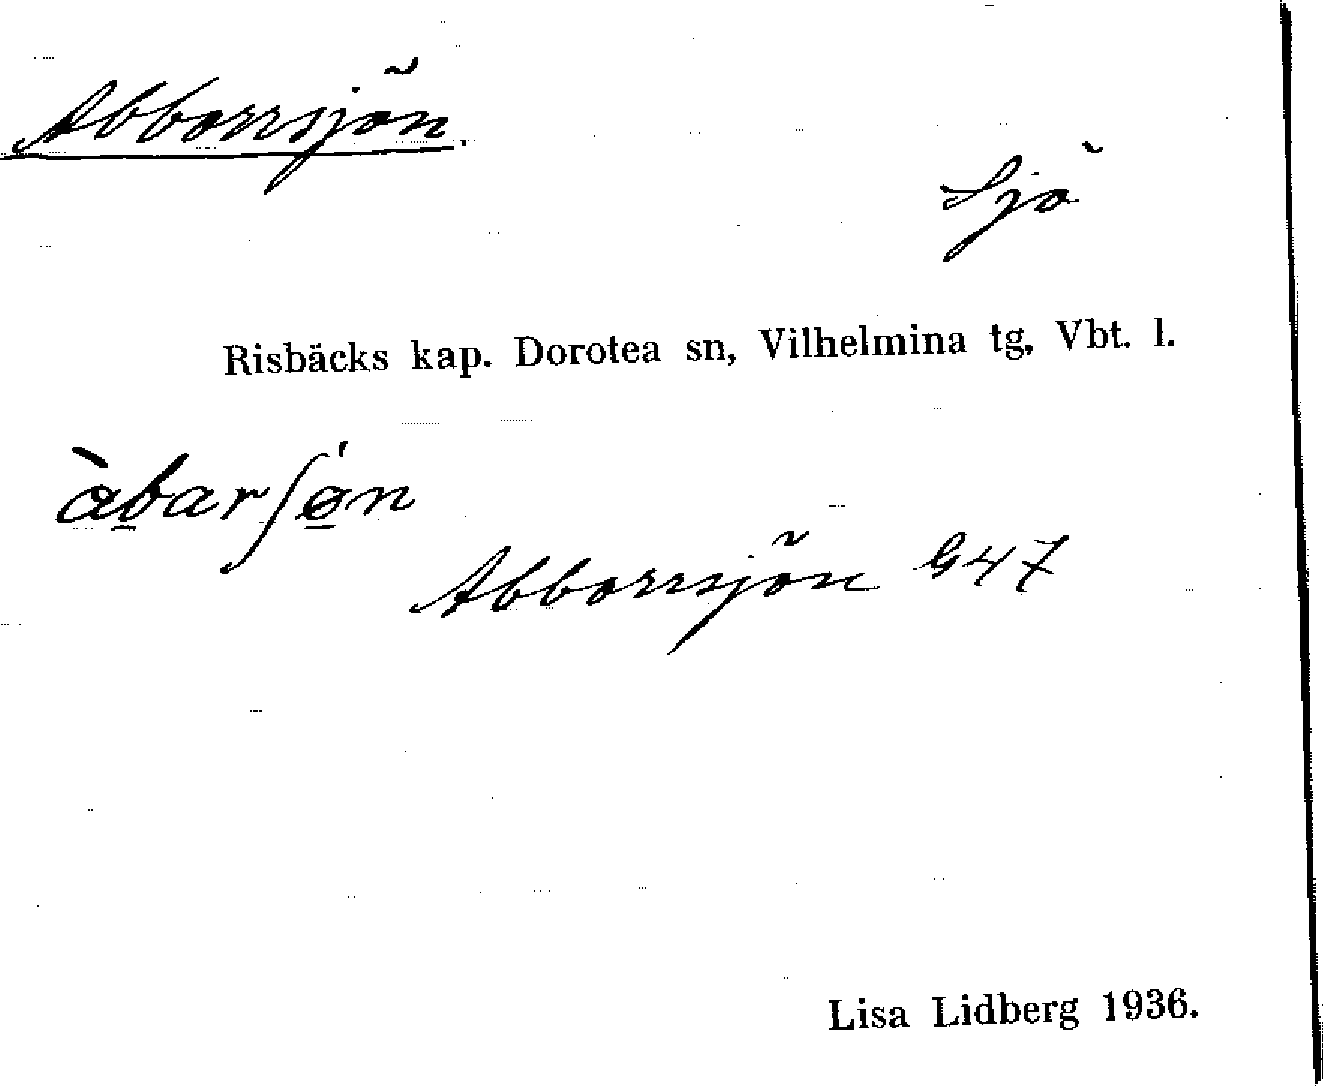 Abborrsjön.
Sjö
Risbäcks kap. Dorotea sn, Vilhelmina tg, Vbt. l.
àbarʃǿ̱n
Abborrsjön G47
Lisa Lidberg 1936.